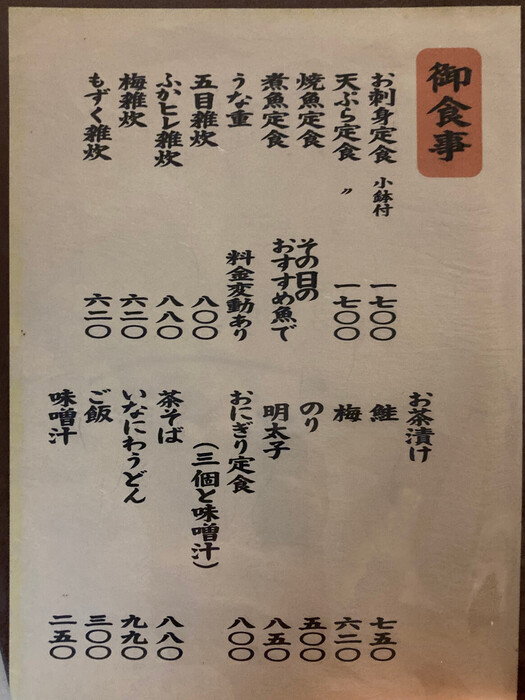 御食事
お刺身定食 小鉢付 一七〇〇
天ぷら定食 〃 一七〇〇
焼魚定食 その日の
煮魚定食 おすすめ魚で
うな重 料金変動あり
五目雑炊 八〇〇
ふかヒレ雑炊 八八〇
梅雑炊 六二〇
もずく雑炊 六二〇
お茶漬け
鮭 七五〇
梅 六二〇
のり 五〇〇
明太子 八五〇
おにぎり定食 八〇〇
(三個と味噌汁)
茶そば 八八〇
いなにわうどん 九九〇
ご飯 三〇〇
味噌汁 二五〇